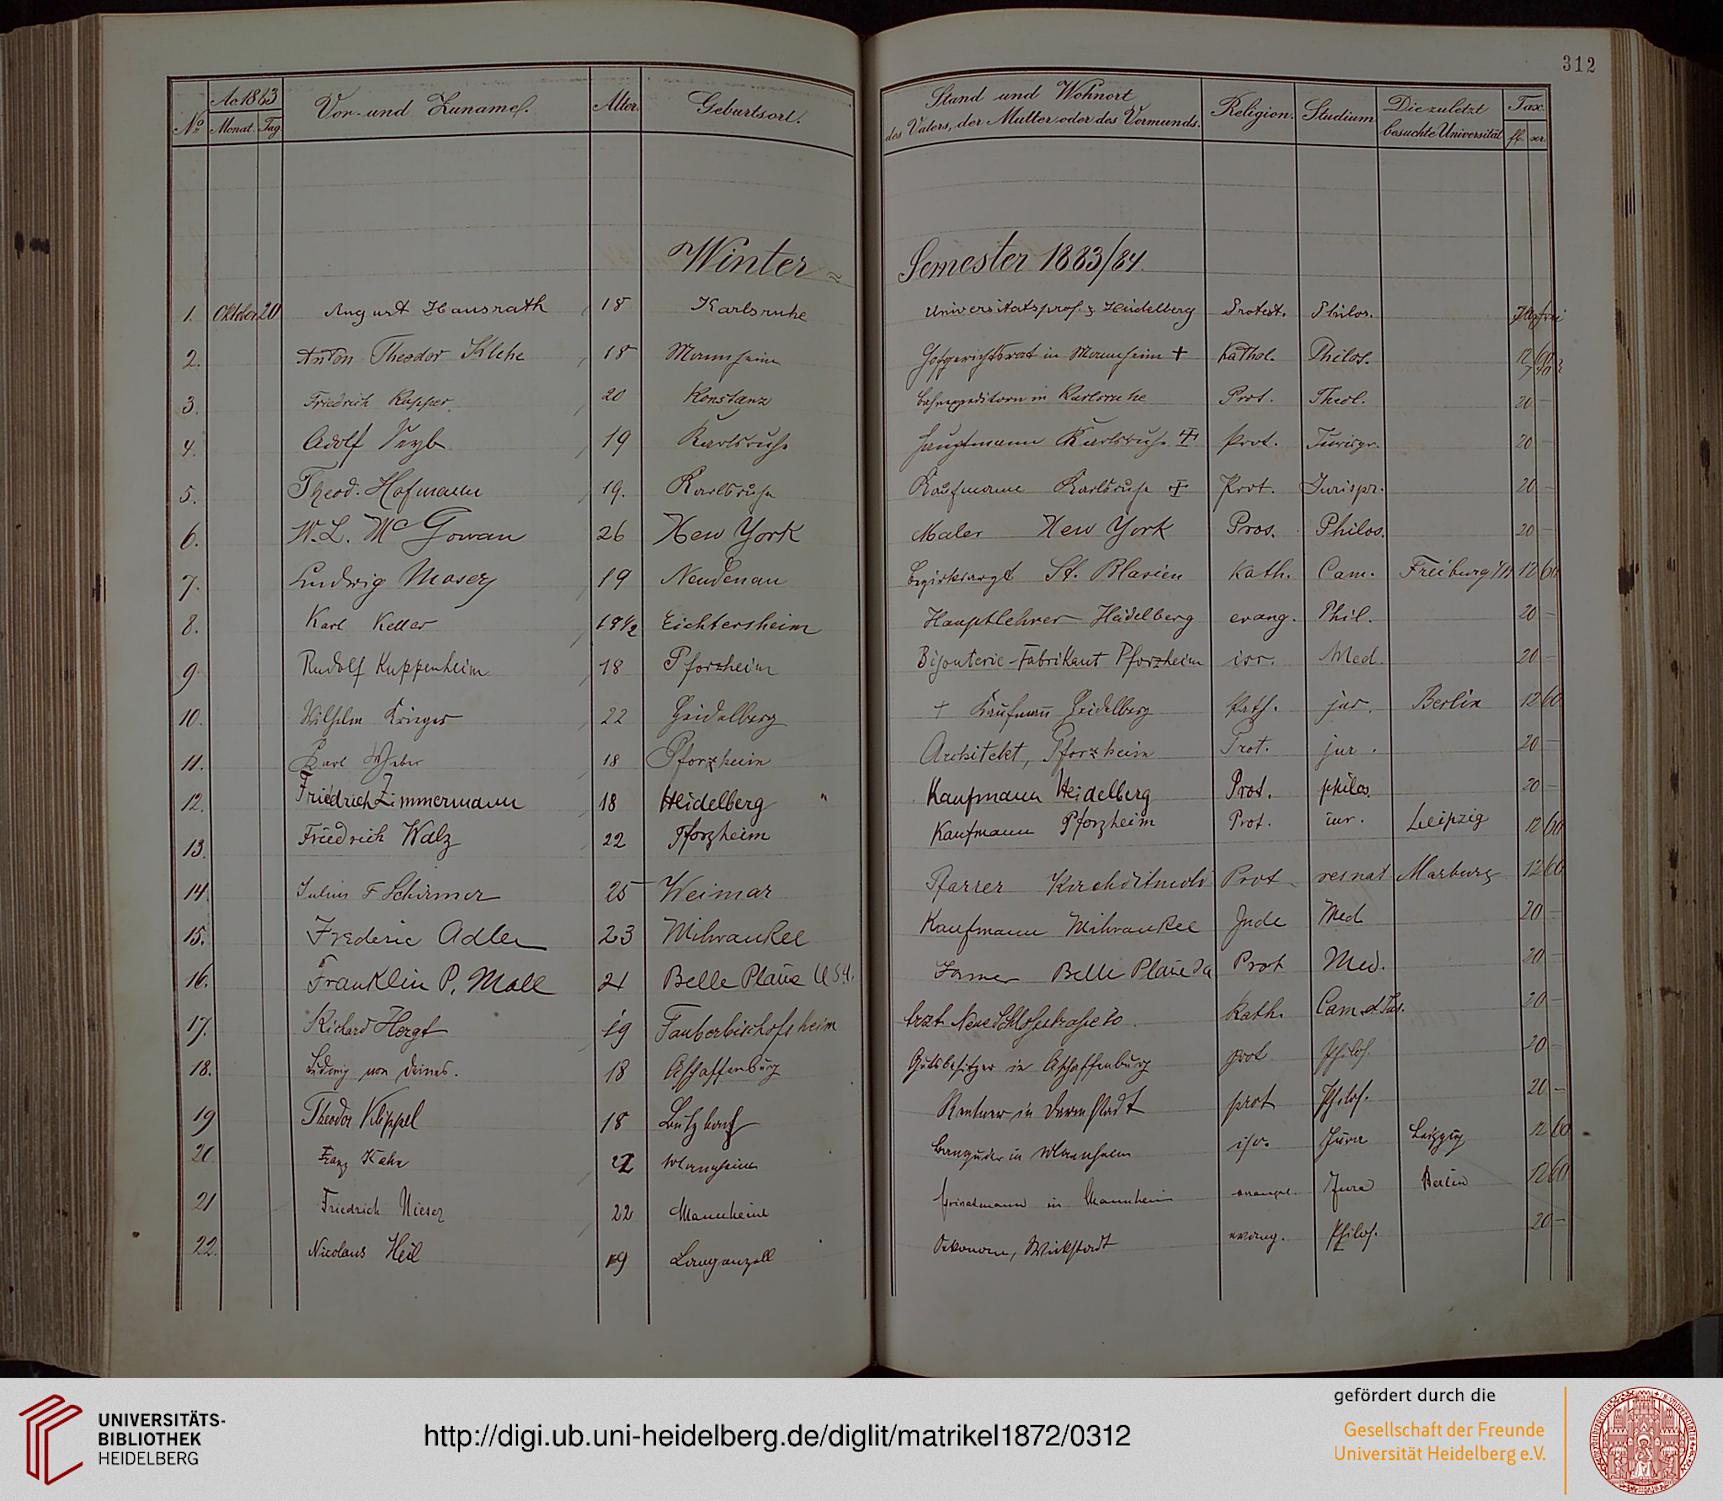 312
No. Ao 1883 Monat. Tag. Vor- und Zuname. Alter. Geburtsort. Stand und Wohnort des Vaters, der Mutter oder des Vormunds. Religion. Studium Die zuletzt besuchte Universität Tax. fl. xr.
Winter = Semester 1883/84.
1. Oktober 20 August Hausrath 18 Karlsruhe Universitätsprof. Heidelberg Protest. Philos.
2. Anton Theodor Klehe 18 Mannheim Hofgerichtsrat in Mannheim † Kathol. Philos. 12 60
3. Friedrich Kapper 20 Konstanz in Karlsruhe Prot. Theol. 20 –
4. Adolf Seyb 19 Karlsruhe Hauptmann Karlsruhe † Prot. Jurispr. 20 –
5. Theod. Hofmann 19. Karlsruhe Kaufmann Karlsruhe † Prot. Jurispr. 20 –
6. W. L. McGowan 26 New York Maler New York Pros. Philos. 20 –
7. Ludwig Moser 19 Neudenau Bezirksarzt St. Blasien Kath. Cam. Freiburg i/B 12 60
8. Karl Keller 19½ Eichtersheim Hauptlehrer Heidelberg evang. Phil. 20 –
9. Rudolf Kuppenheim 18 Pforzheim Bijouterie-Fabrikant Pforzheim isr. Med. 20 –
10. Wilhelm Krieger 22 Heidelberg † Kaufmann Heidelberg Kath. jur. Berlin 12 60
11. Karl Weber 18 Pforzheim Architekt, Pforzheim Prot. jur. 20 –
12. Friedrich Zimmermann 18 Heidelberg Kaufmann Heidelberg Prot. philos. 20 –
13. Friedrich Walz 22 Pforzheim Kaufmann Pforzheim Prot. iur. Leipzig 12 60
14. Julius F Schirmer 25 Weimar Pfarrer Prot. rer nat Marburg 12 60
15. Frederic Adler 23 Milwaukee Kaufmann Milwaukee Jude Med 20 –
16. Franklin P. Mall 21 Belle Plaine U.S.A. Farmer Belle Plaine Ia Prot Med. 20 –
17. Richard Hergt 19 Tauberbischofsheim Arzt Neue Schloßstraße 10 Kath. Cam. et Jus. 20 –
18. Ludwig von Deines. 18 Aschaffenburg Gutsbesitzer in Aschaffenburg prot Philos. 20 –
19 Theodor Klippel 18 Butzbach Rentner in Darmstadt prot Philos. 20 –
20 Franz Kahn 22 Mannheim Banquier in Mannheim isr. Jura Leipzig 12 60
21 Friedrich Nieser 22 Mannheim Privatmann in Mannheim evangel. Jura Berlin 12 60
22. Nicolaus Heil 19 Langenzell Oekonom, evang. Philos. 20 –
UNIVERSITÄTS-
BIBLIOTHEK
HEIDELBERG
http://digi.ub.uni-heidelberg.de/diglit/matrikel1872/0312
gefördert durch die
Gesellschaft der Freunde
Universität Heidelberg e.V.